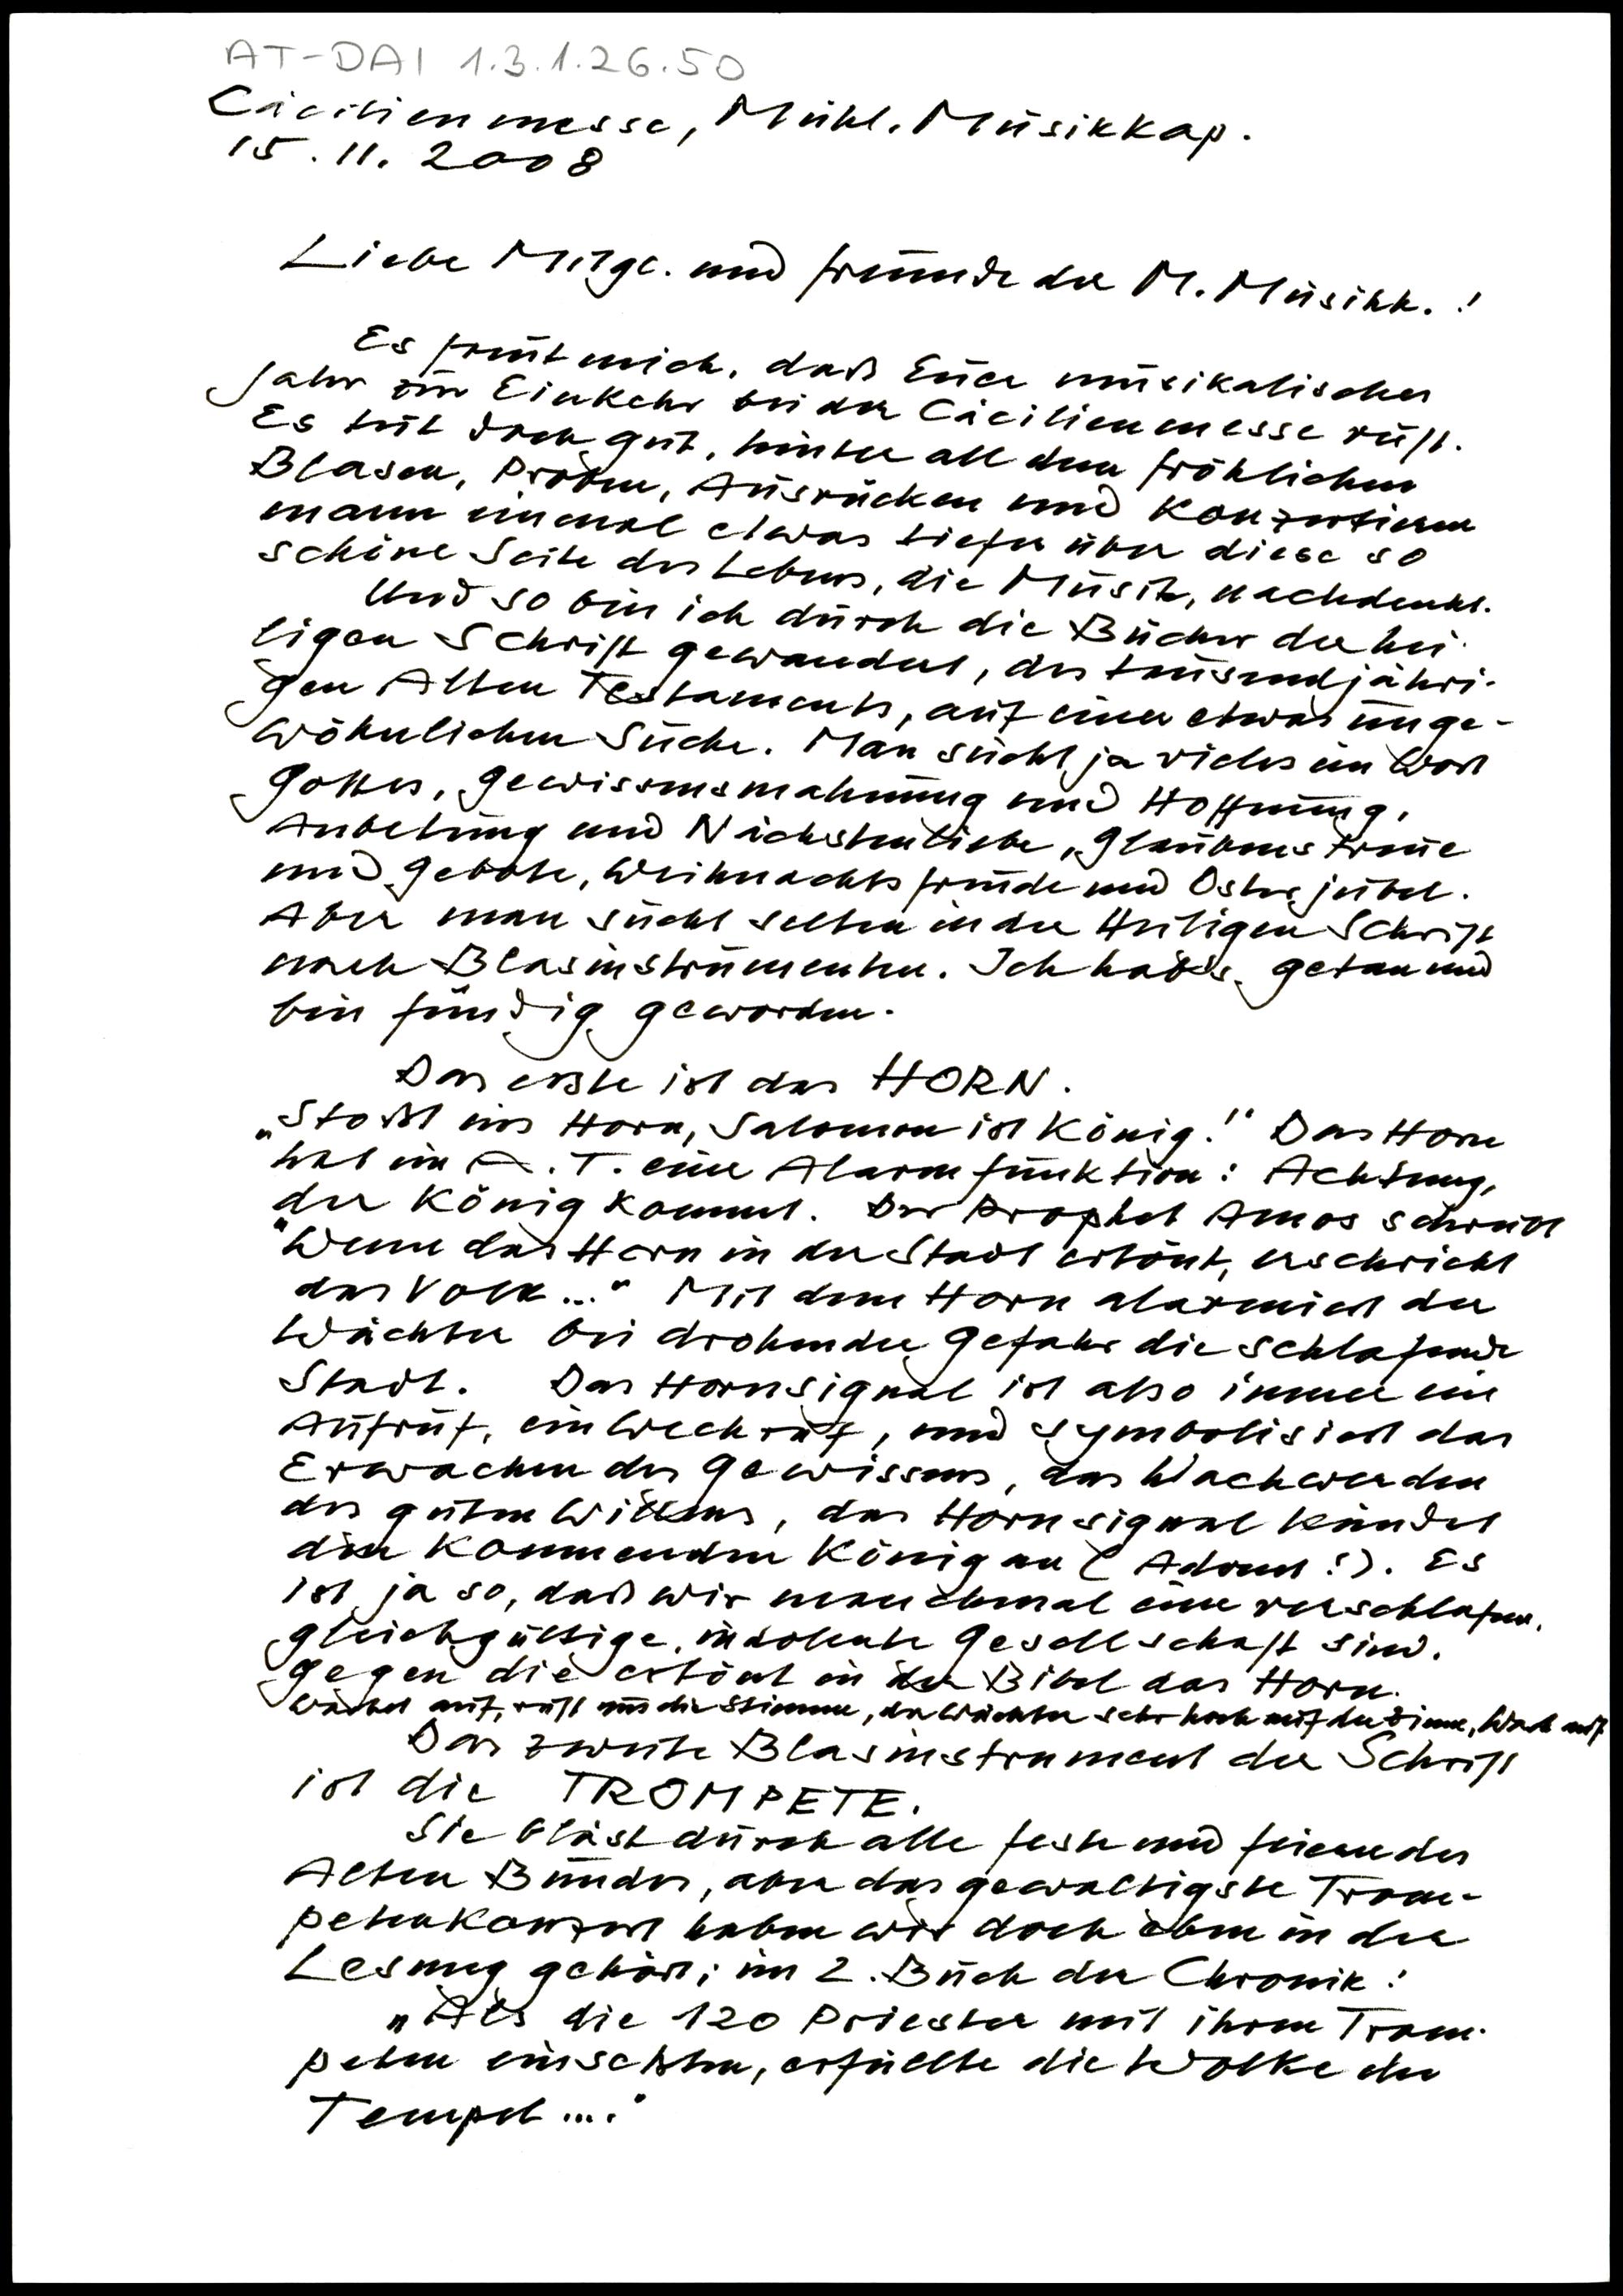 AT-DAI 1.3.1.26.50
Cäcilienmesse, Mühl. Musikkap.
15.11.2008
Liebe Mitgl. und Freunde der M. Musikk.!
Es freut mich, daß Euer musikalisches
Jahr zur Einkehr bei der Cäcilienmesse ruft.
Es tut doch gut, hinter all dem fröhlichen
Blasen, Proben, Ausrücken und Konzertieren
einmal etwas tiefer über diese so
schöne Seite des Lebens, die Musik, nachdenkt.
Und so bin ich durch die Bücher der hei-
ligen Schrift gewandert, des tausendjähri-
gen Alten Testaments, auf einer etwas unge-
wöhnlichen Suche. Man sucht ja vieles im Wort
Gottes, Gewissensmahnung und Hoffnung,
Anbetung und Nächstenliebe, Glaubenstreue
und Gebote, Weihnachtsfreude und Osterjubel.
Aber man sucht selten in der Heiligen Schrift
nach Blasinstrumenten. Ich hab's getan und
bin fündig geworden.
Das erste ist das HORN.
„Stoßt ins Horn, Salomon ist König!" Das Horn
hat im A.T. eine Alarmfunktion: Achtung,
der König kommt. Der Prophet Amos schreibt
"Wenn das Horn in der Stadt ertönt, erschrickt
das Volk..." Mit dem Horn alarmiert der
Wächter bei drohender Gefahr die schlafende
Stadt. Das Hornsignal ist also immer ein
Aufruf, ein Weckruf, und symbolisiert das
Erwachen des Gewissens, das Wachwerden
des guten Willens, das Hornsignal kündet
den kommenden König an (Advent!). Es
ist ja so, daß wir manchmal eine verschlafene,
gleichgültige, indolente Gesellschaft sind.
Gegen die ertönt in der Bibel das Horn.
Wachet auf, ruft uns die Stimme, der Wächter sehr hoch auf der Zinne, Wach auf
Das zweite Blasinstrument der Schrift
ist die TROMPETE.
Sie bläst durch alle Feste und Feiern des
Alten Bundes, aber das gewaltigste Trom-
petenkonzert haben wir doch eben in der
Lesung gehört; im 2. Buch der Chronik:
„Als die 120 Priester mit ihren Trom-
peten einsetzten, erfüllte die Wolke den
Tempel...."